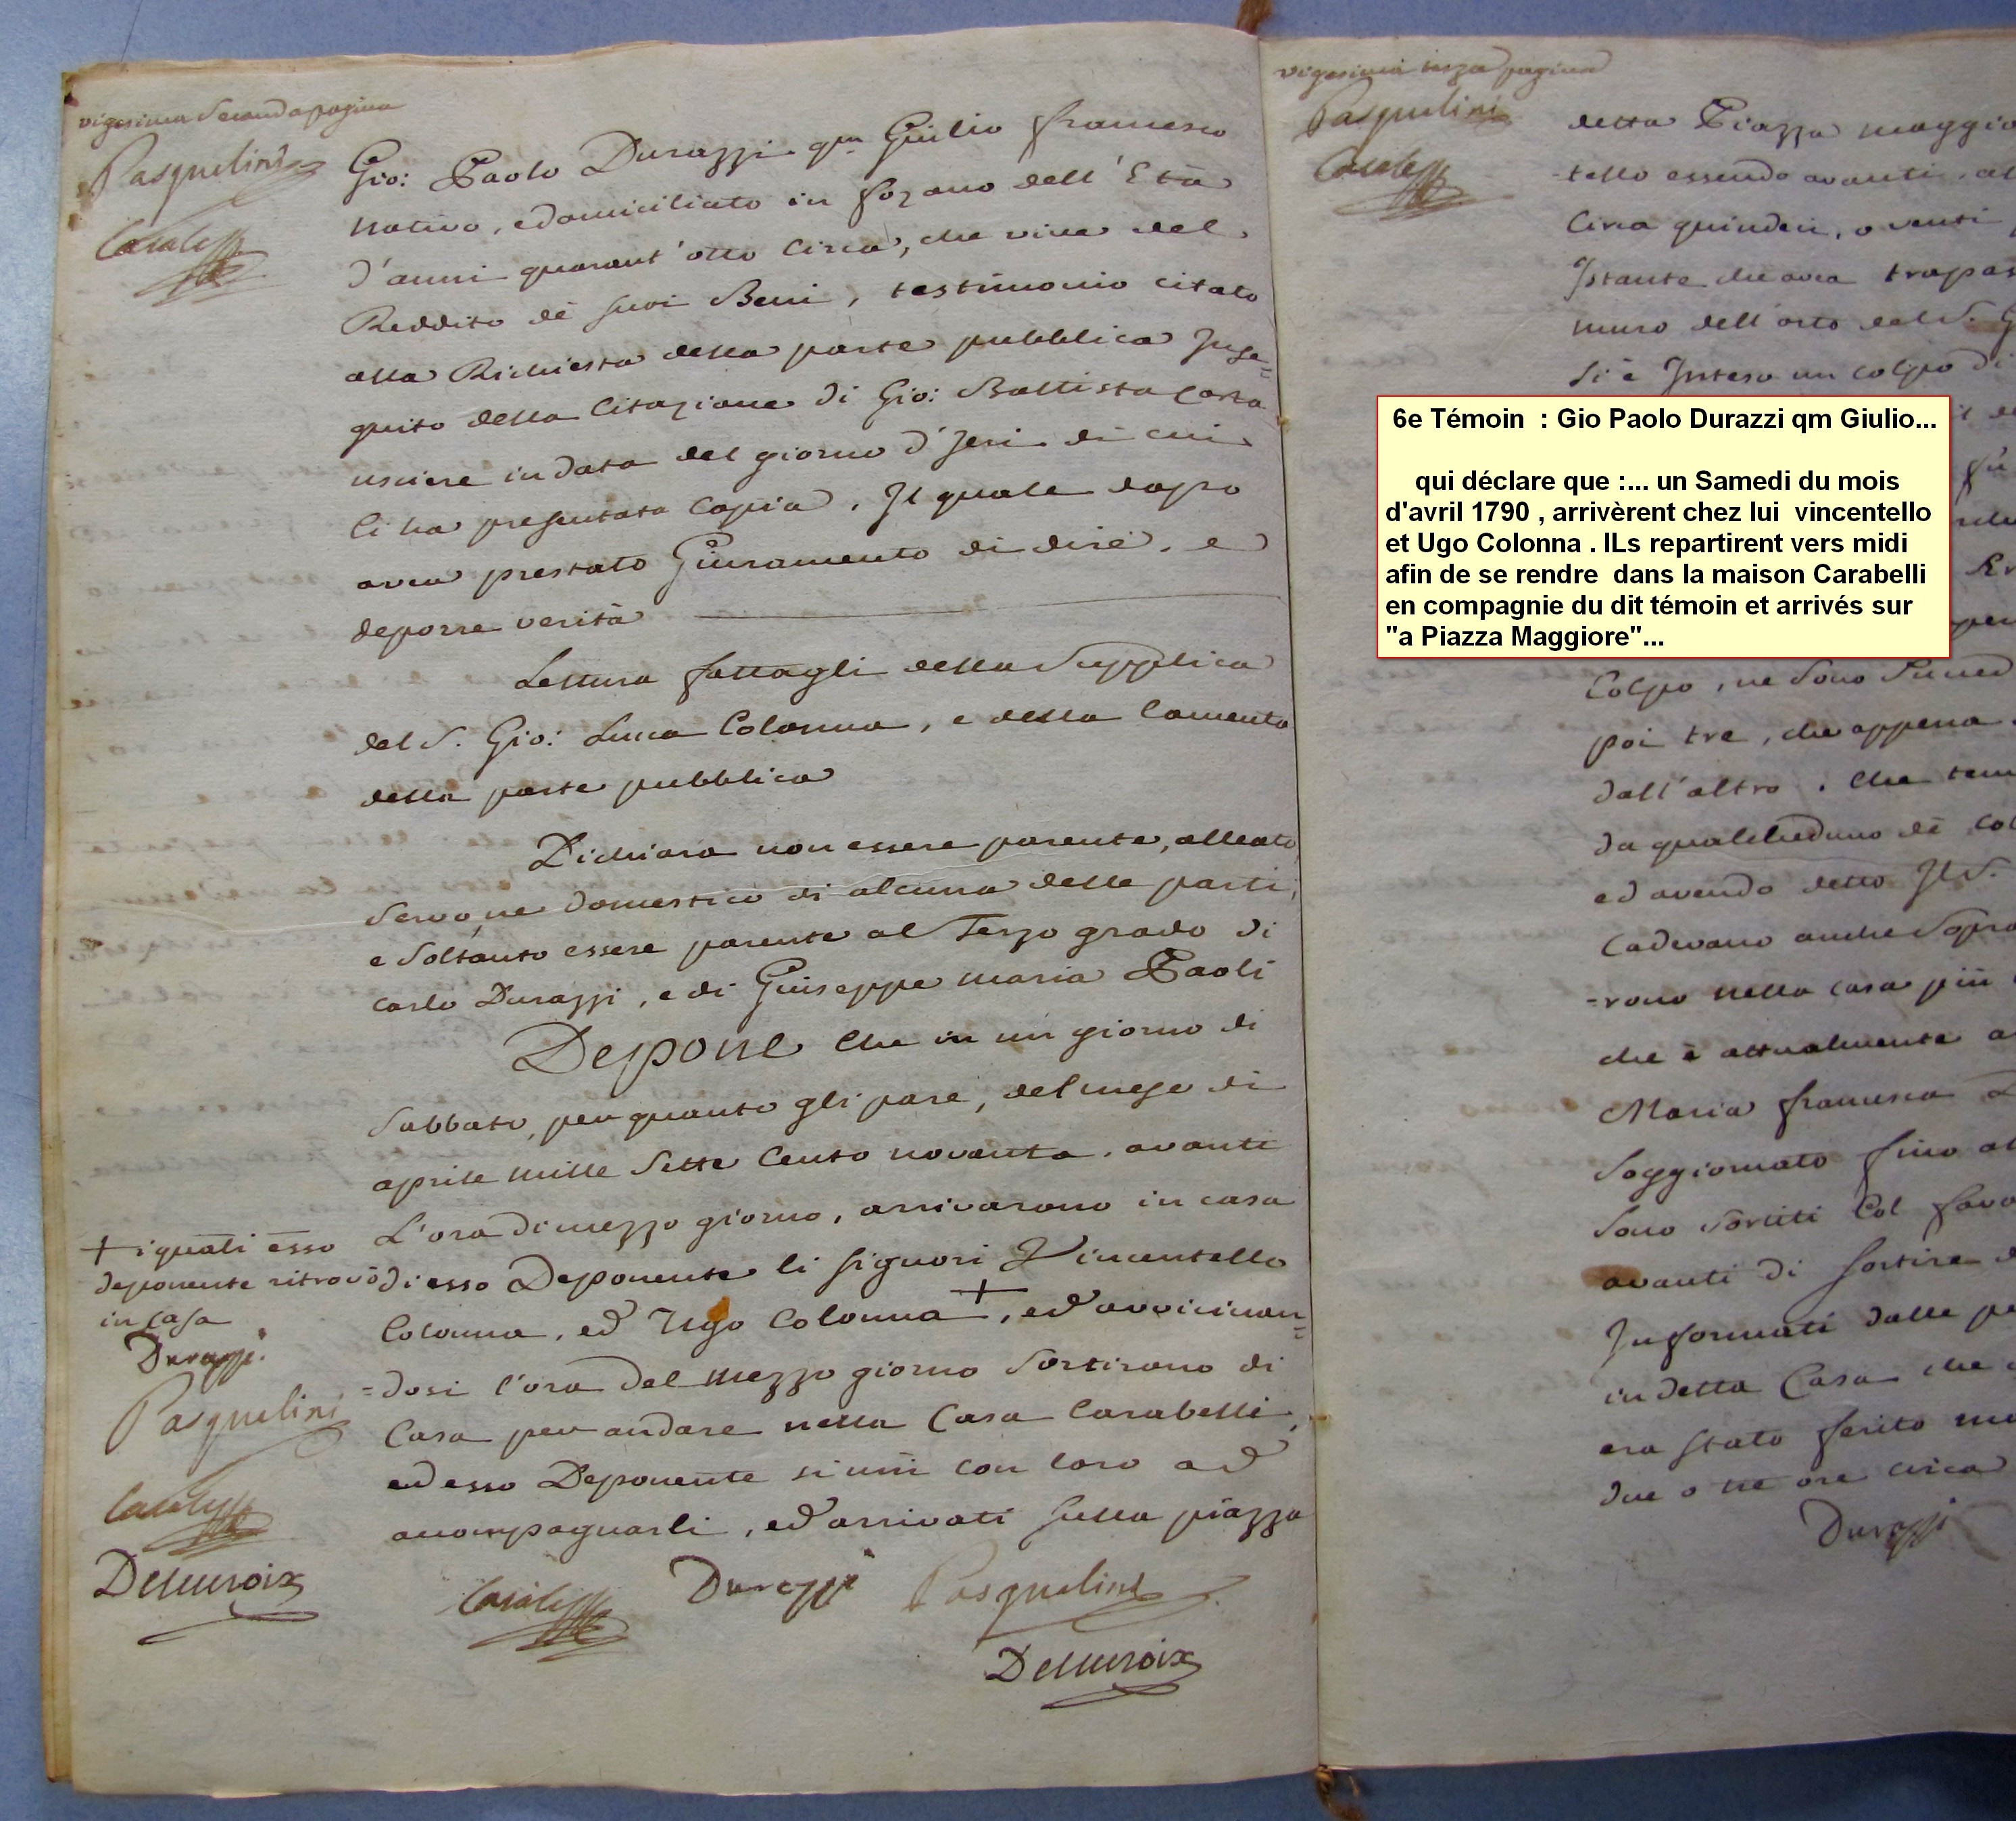 vigesima seconda pagina
Pasqualini
Gio: Paolo Durazzi qm Giulio francesco
nativo, e domiciliato in fozano dell'Età
d'anni quarant'otto Circa, che vive del
Reddito de suoi Beni, testimonio citato
alla Richiesta della parte pubblica Inse=
guito della Citazione di Gio: Battista Costa
usciere in data del giorno d'Jeri di cui
ci ha presentata Copia. Il quale dopo
aver prestato Giuramento di dire, e
deporre verità
Lettura fattagli della Supplica
del S. Gio: Luca Colonna, e della lamenta
della parte pubblica
Dichiara non essere parente, alleato,
Servo, ne domestico di alcuna delle parti,
e Soltanto essere parente al Terzo grado di
Carlo Durazzi, e di Giuseppe Maria Paoli
Depone Che in un giorno di
Sabbato, per quanto gli pare, del mese di
aprile mille Sette Cento novanta, avanti
L'ora di mezzo giorno, arrivarono in casa
di esso Deponente li signori Vincentello
Colonna, ed Ugo Colonna +, ed avvicinan=
=dosi l'ora del mezzo giorno Sortirono di
Casa per andare nella Casa Carabelli,
ed esso Deponente si unì con loro ad
accompagnarli, ed arrivati sulla piazza
+ i quali esso
deponente ritrovò
in casa
Durazzi
Pasqualini
Delacroix
Durazzi
Pasqualini
Delacroix
vigesima terza pagina
Pasqualini
detta Piazza maggio
-tello essendo avanti, al
Circa quindeci, o venti
Istante che avea trapas
muro dell'orto del S. G
Si è Inteso un colpo di
6e Témoin : Gio Paolo Durazzi qm Giulio...
qui déclare que :... un Samedi du mois
d'avril 1790 , arrivèrent chez lui vincentello
et Ugo Colonna . ILs repartirent vers midi
afin de se rendre dans la maison Carabelli
en compagnie du dit témoin et arrivés sur
"a Piazza Maggiore"...
Colpo, ne Sono Succed
poi tre, che appena
dall'altro. Che tem
da qualcheduno de col
ed avendo detto Il S.
Cadevano anche Sopra
=rono nella casa più
che è attualmente a
Maria francesca
Soggiornato fino al
Sono Sortiti Col favo
avanti di Sortire d
Informati dalle pe
in detta Casa che
era stato ferito mo
due o tre ore circa
Durazzi